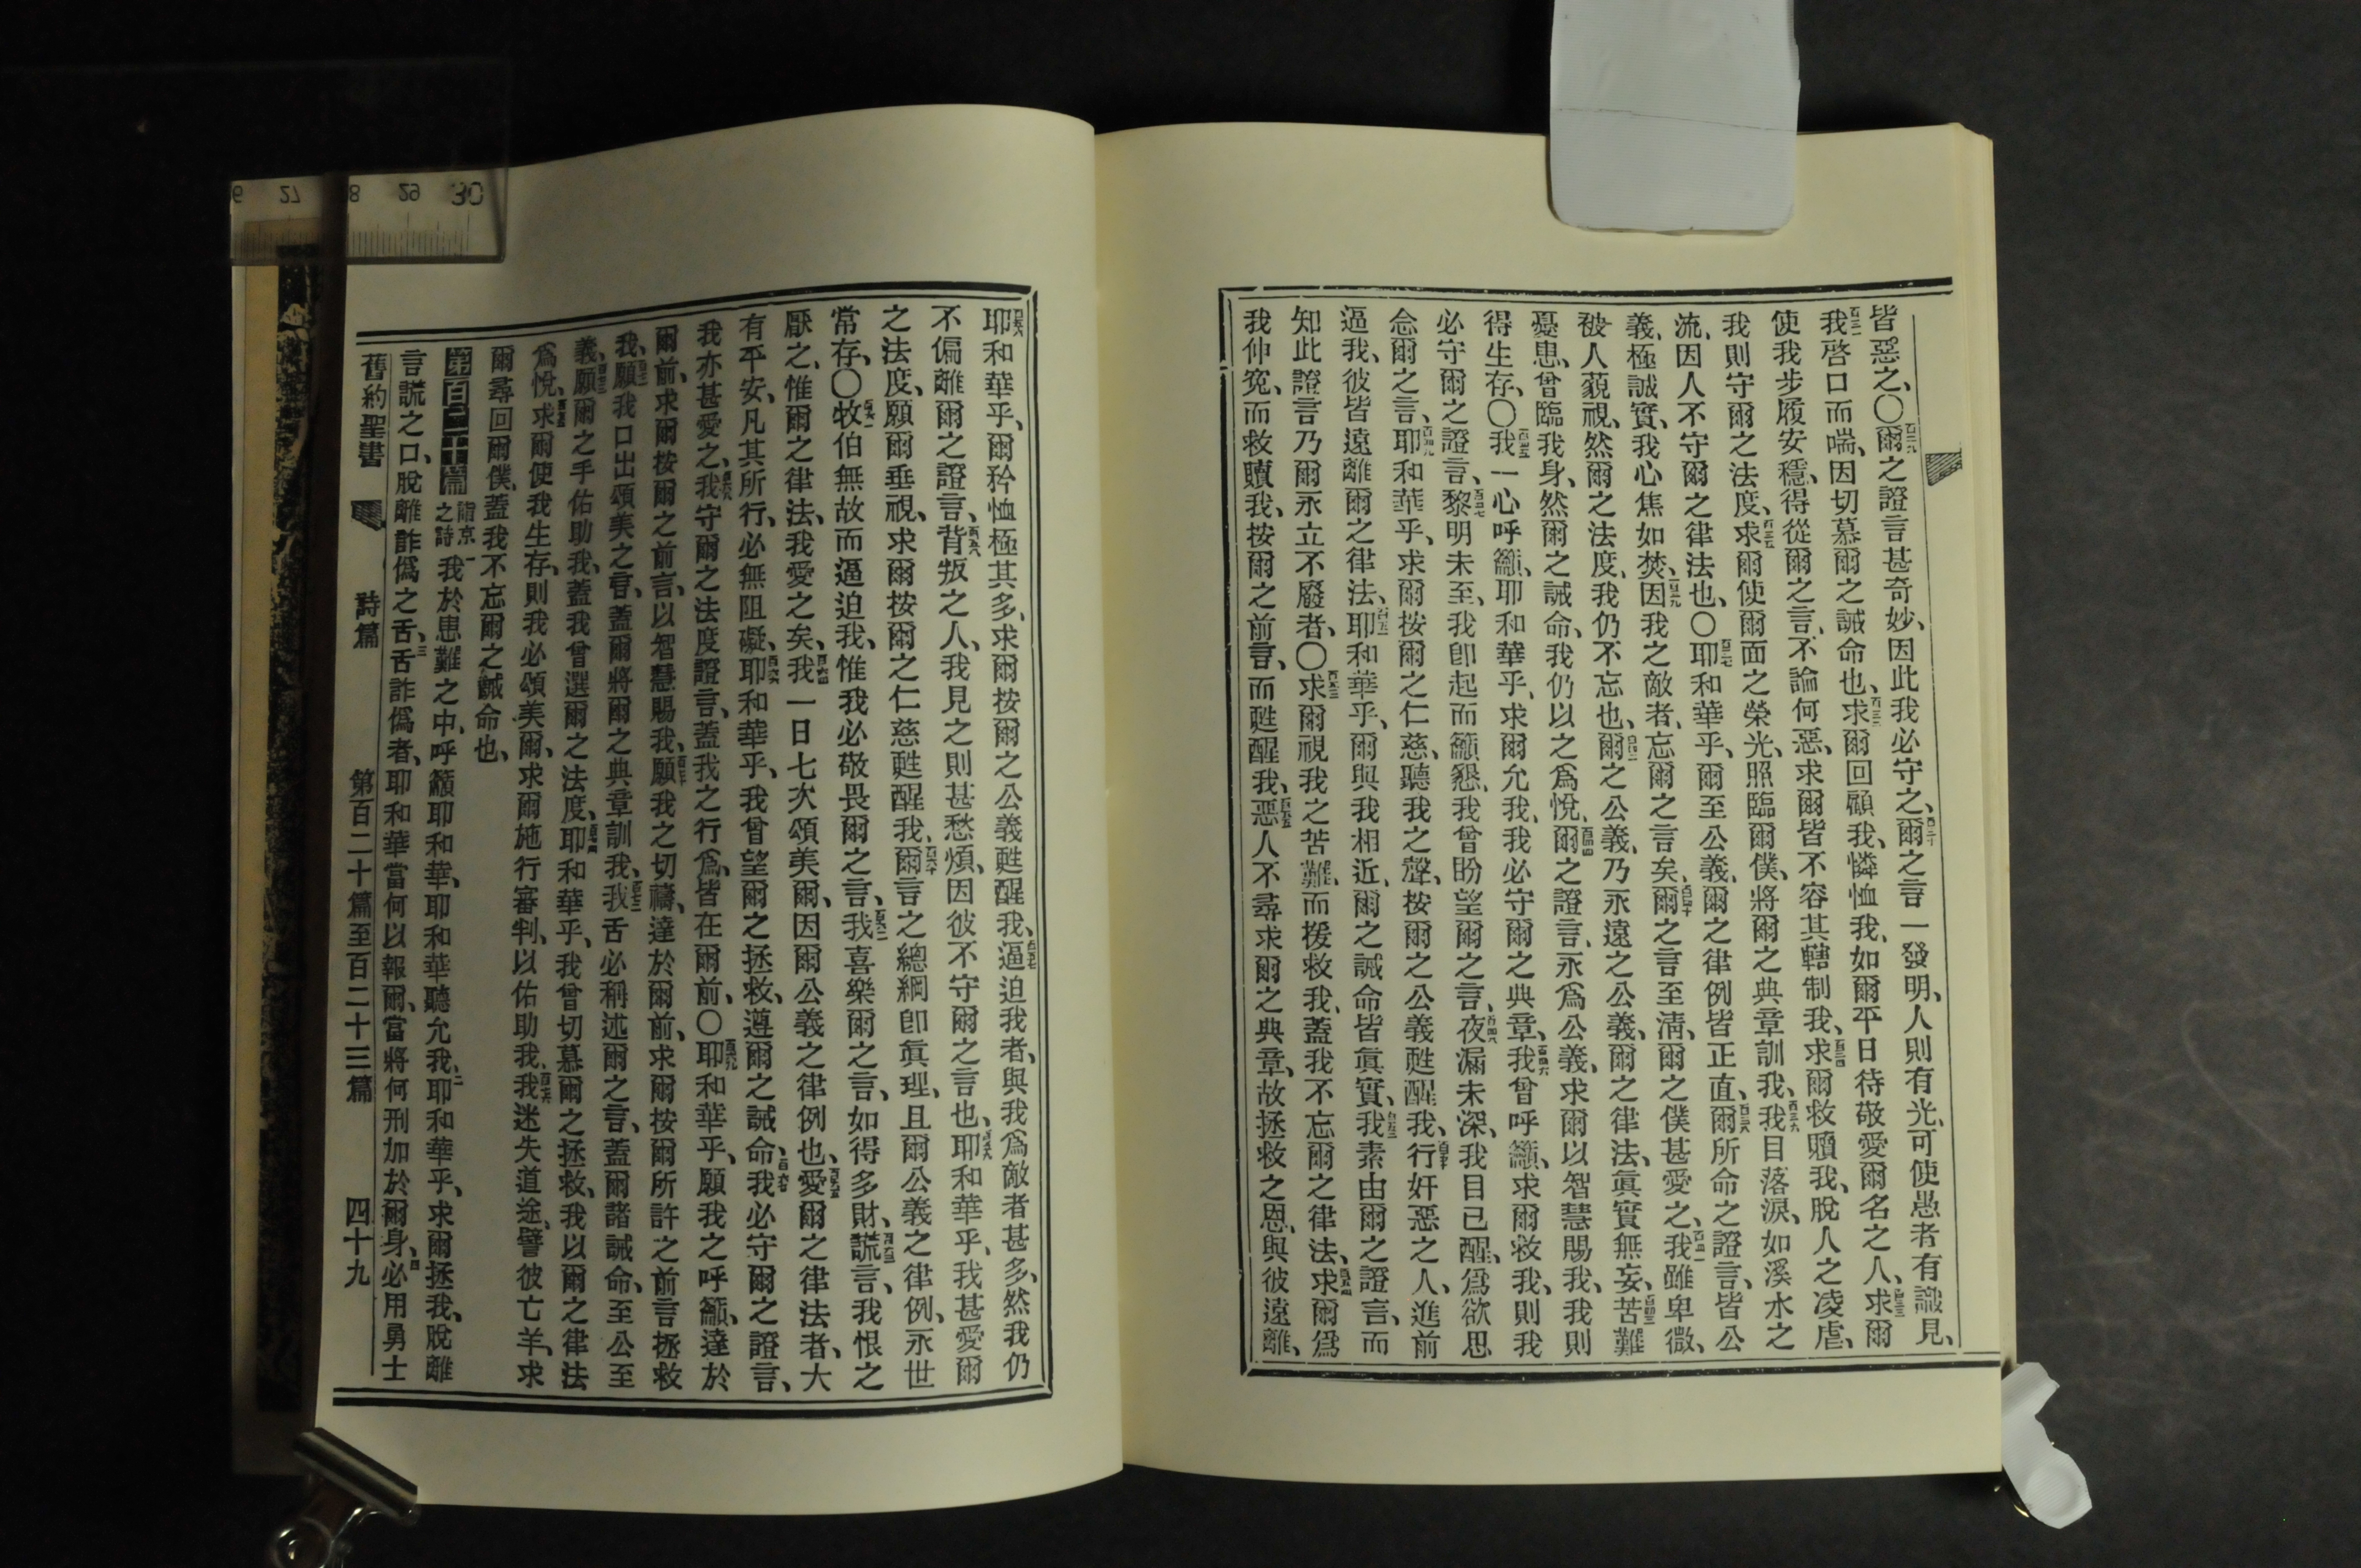 皆惡之、〇百二九爾之證言甚奇妙、因此我必守之、百三十爾之言一發明、人則有光、可使愚者有識見、
百三一我啓口而喘、因切慕爾之誡命也、百三二求爾回顧我、憐恤我、如爾平日待敬愛爾名之人、百三三求爾
使我步履安穩、得從爾之言、不論何惡、求爾皆不容其轄制我、百三四求爾救贖我、脫人之凌虐、
我則守爾之法度、百三五求爾使爾面之榮光、照臨爾僕、將爾之典章訓我、百三六我目落淚、如溪水之
流、因人不守爾之律法也、〇百三七耶和華乎、爾至公義、爾之律例皆正直、百三八爾所命之證言、皆公
義、極誠實、百三九我心焦如焚、因我之敵者、忘爾之言矣、百四十爾之言至淸、爾之僕甚愛之、百四一我雖卑微、
被人藐視、然爾之法度、我仍不忘也、百四二爾之公義、乃永遠之公義、爾之律法、眞實無妄、百四三苦難
憂患、曾臨我身、然爾之誡命、我仍以之爲悅、百四四爾之證言、永爲公義、求爾以智慧賜我、我則
得生存、〇百四五我一心呼籲、耶和華乎、求爾允我、我必守爾之典章、百四六我曾呼籲、求爾救我、則我
必守爾之證言、百四七黎明未至、我卽起而籲懇、我曾盼望爾之言、百四八夜漏未深、我目已醒、爲欲思
念爾之言、百四九耶和華乎、求爾按爾之仁慈、聽我之聲、按爾之公義甦醒我、百五十行奸惡之人、進前
逼我、彼皆遠離爾之律法、百五一耶和華乎、爾與我相近、爾之誡命皆眞實、百五二我素由爾之證言、而
知此證言乃爾永立不廢者、〇百五三求爾視我之苦難、而援救我、蓋我不忘爾之律法、百五四求爾爲
我伸寃、而救贖我、按爾之前言、而甦醒我、百五五惡人不尋求爾之典章、故拯救之恩、與彼遠離、
百五六耶和華乎、爾矜恤極其多、求爾按爾之公義甦醒我、百五七逼迫我者、與我爲敵者甚多、然我仍
不偏離爾之證言、百五八背叛之人、我見之則甚愁煩、因彼不守爾之言也、百五九耶和華乎、我甚愛爾
之法度、願爾垂視、求爾按爾之仁慈甦醒我、百六十爾言之總綱卽眞理、且爾公義之律例、永世
常存、〇百六一牧伯無故而逼迫我、惟我必敬畏爾之言、百六二我喜樂爾之言、如得多財、百六三謊言、我恨之
厭之、惟爾之律法、我愛之矣、百六四我一日七次頌美爾、因爾公義之律例也、百六五愛爾之律法者、大
有平安、凡其所行、必無阻礙、百六六耶和華乎、我曾望爾之拯救、遵爾之誡命、百六七我必守爾之證言、
我亦甚愛之、百六八我守爾之法度證言、蓋我之行爲、皆在爾前、〇百六九耶和華乎、願我之呼籲、達於
爾前、求爾按爾之前言、以智慧賜我、百七十願我之切禱、達於爾前、求爾按爾所許之前言拯救
我、百七一願我口出頌美之言、蓋爾將爾之典章訓我、百七二我舌必稱述爾之言、蓋爾諸誡命、至公至
義、百七三願爾之手佑助我、蓋我曾選爾之法度、百七四耶和華乎、我曾切慕爾之拯救、我以爾之律法
爲悅、百七五求爾使我生存、則我必頌美爾、求爾施行審判、以佑助我、百七六我迷失道途、譬彼亡羊、求
爾尋回爾僕、蓋我不忘爾之誡命也、
第百二十篇 詣京之詩 一我於患難之中、呼籲耶和華、耶和華聽允我、二耶和華乎、求爾拯我、脫離
言謊之口、脫離詐僞之舌、三舌詐僞者、耶和華當何以報爾、當將何刑加於爾身、四必用勇士
舊約聖書 詩篇 第百二十篇至百二十三篇 四十九
27 28 29 30